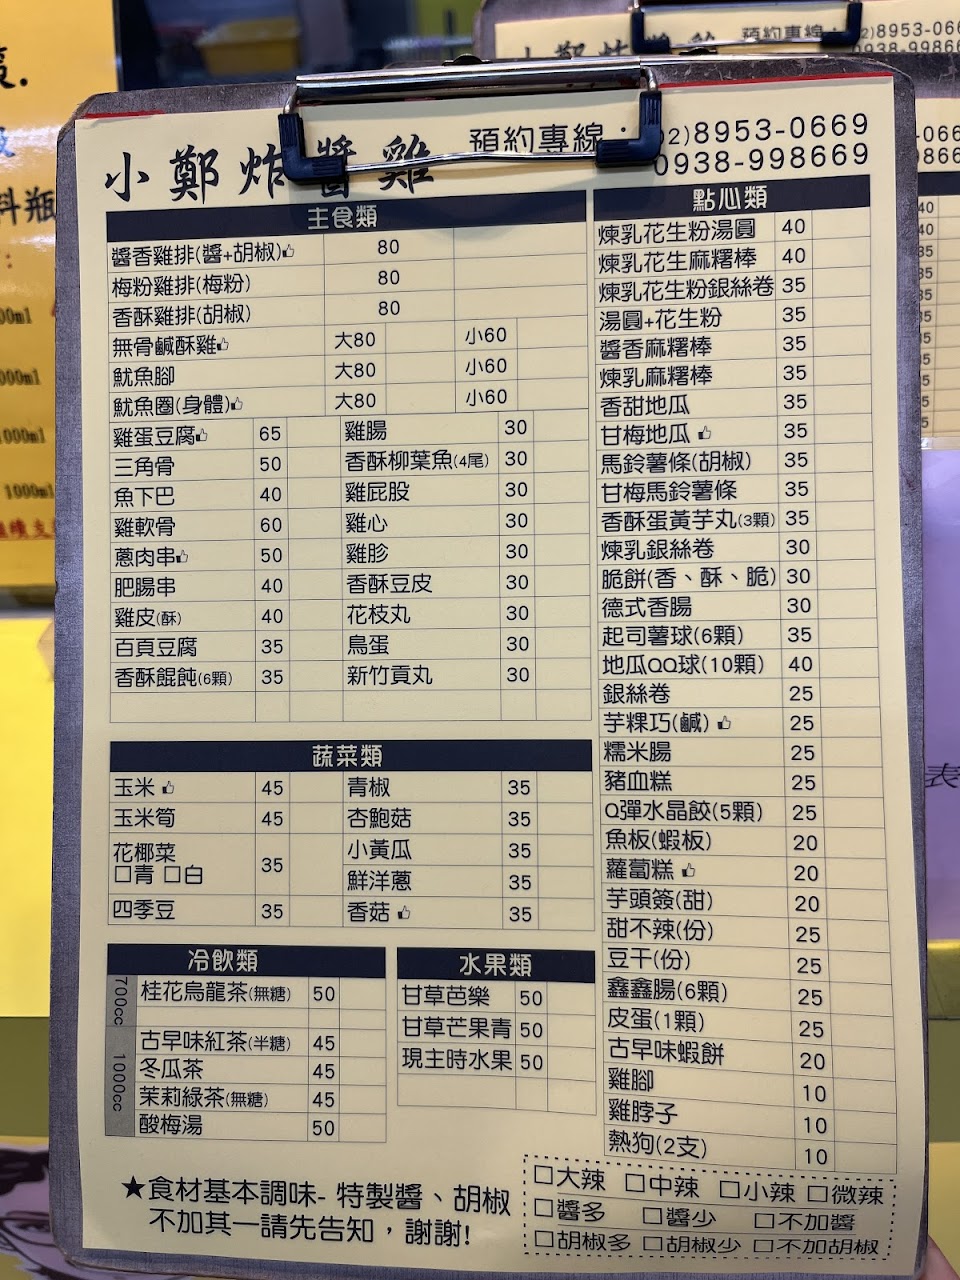 小鄭炸醬雞
預約專線：(02)8953-0669
0938-998669
主食類
醬香雞排(醬+胡椒) 80
梅粉雞排(梅粉) 80
香酥雞排(胡椒) 80
無骨鹹酥雞 大80 小60
魷魚腳 大80 小60
魷魚圈(身體) 大80 小60
雞蛋豆腐 65 雞腸 30
三角骨 50 香酥柳葉魚(4尾) 30
魚下巴 40 雞屁股 30
雞軟骨 60 雞心 30
蔥肉串 50 雞胗 30
肥腸串 40 香酥豆皮 30
雞皮(酥) 40 花枝丸 30
百頁豆腐 35 鳥蛋 30
香酥餛飩(6顆) 35 新竹貢丸 30
蔬菜類
玉米 45 青椒 35
玉米筍 45 杏鮑菇 35
花椰菜 35 小黃瓜 35
□青 □白 鮮洋蔥 35
四季豆 35 香菇 35
冷飲類
700cc
桂花烏龍茶(無糖) 50
1000cc
古早味紅茶(半糖) 45
冬瓜茶 45
茉莉綠茶(無糖) 45
酸梅湯 50
水果類
甘草芭樂 50
甘草芒果青 50
現主時水果 50
點心類
煉乳花生粉湯圓 40
煉乳花生麻糬棒 40
煉乳花生粉銀絲卷 35
湯圓+花生粉 35
醬香麻糬棒 35
煉乳麻糬棒 35
香甜地瓜 35
甘梅地瓜 35
馬鈴薯條(胡椒) 35
甘梅馬鈴薯條 35
香酥蛋黃芋丸(3顆) 35
煉乳銀絲卷 30
脆餅(香、酥、脆) 30
德式香腸 30
起司薯球(6顆) 35
地瓜QQ球(10顆) 40
銀絲卷 25
芋粿巧(鹹) 25
糯米腸 25
豬血糕 25
Q彈水晶餃(5顆) 25
魚板(蝦板) 20
蘿蔔糕 20
芋頭簽(甜) 20
甜不辣(份) 25
豆干(份) 25
鑫鑫腸(6顆) 25
皮蛋(1顆) 25
古早味蝦餅 20
雞腳 10
雞脖子 10
熱狗(2支) 10
★食材基本調味- 特製醬、胡椒
不加其一請先告知，謝謝!
□大辣 □中辣 □小辣 □微辣
□醬多 □醬少 □不加醬
□胡椒多 □胡椒少 □不加胡椒